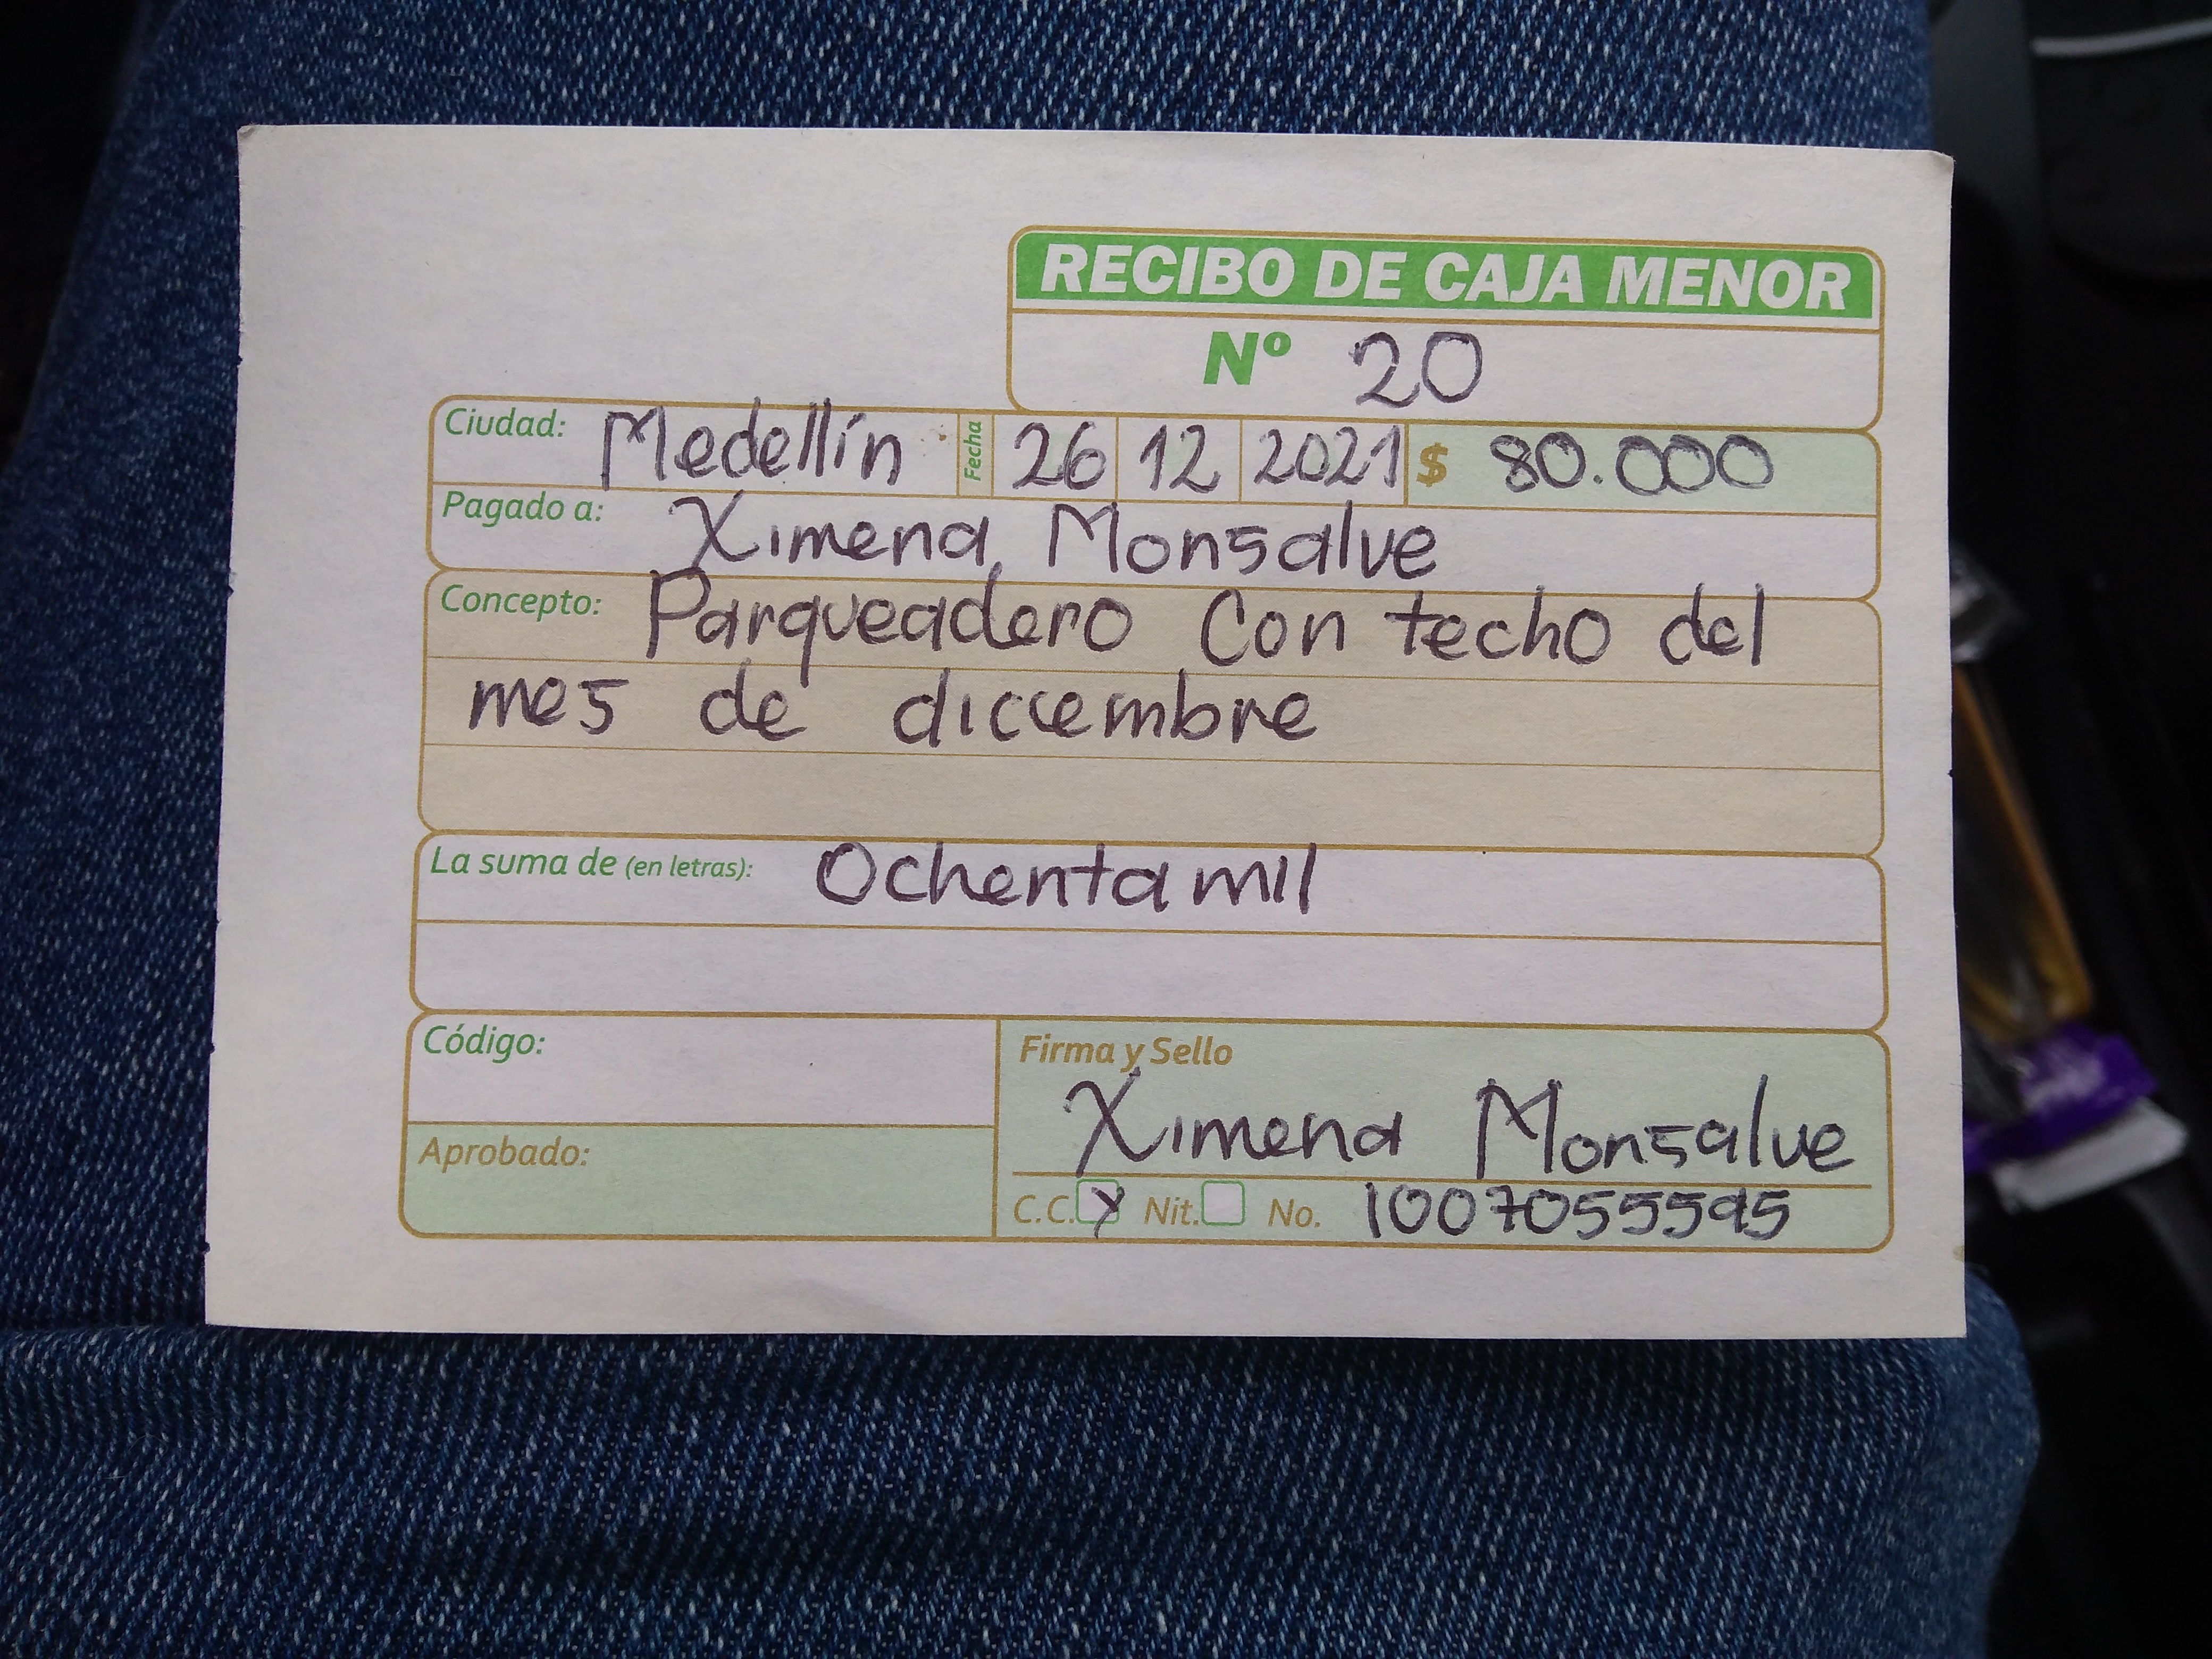 RECIBO DE CAJA MENOR
Nº 20
Ciudad: Medellín Fecha 26 12 2021 $ 80.000
Pagado a: Ximena Monsalve
Concepto: Parqueadero Con techo del
mes de diciembre
La suma de (en letras): Ochenta mil
Código:
Aprobado:
Firma y Sello
Ximena Monsalve
C.C. X Nit. No. 1007055595